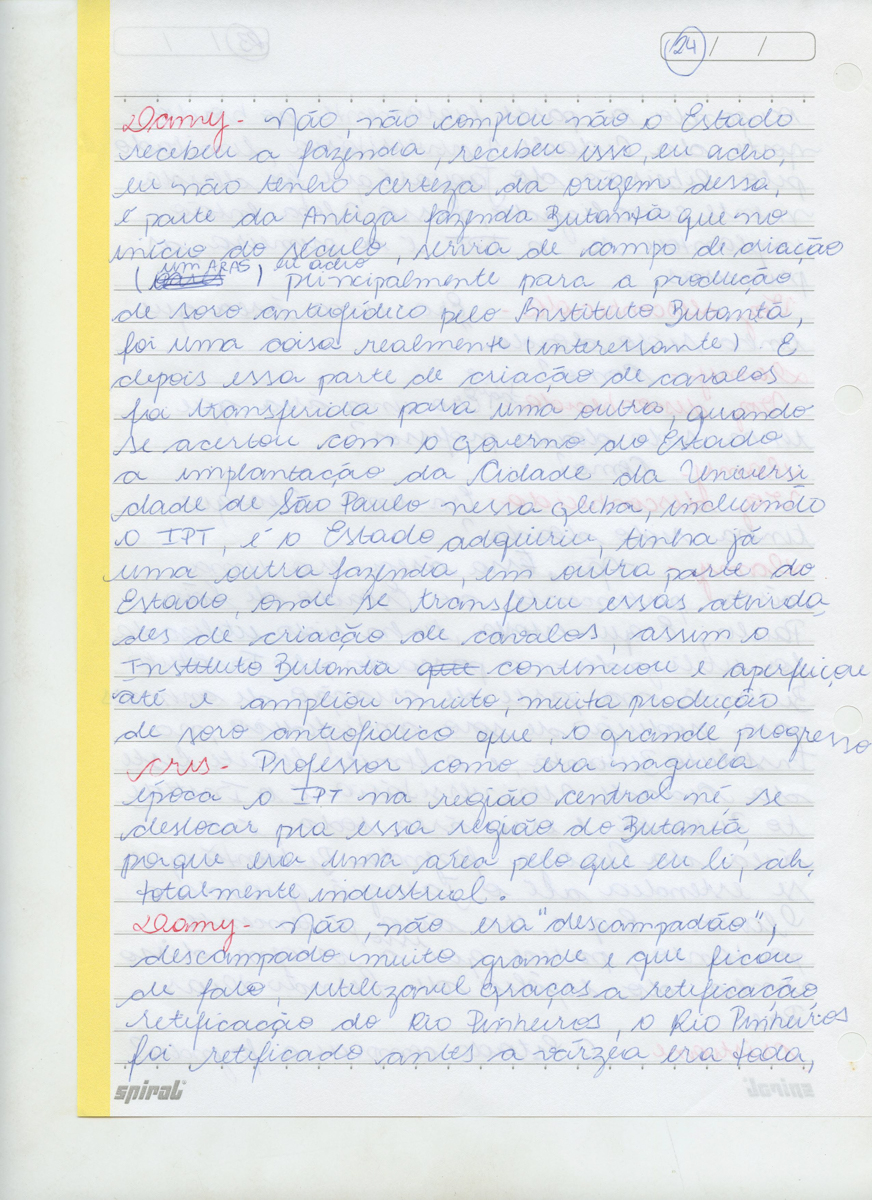 24 / /
Damy - Não, não comprou não o Estado
recebeu a fazenda, recebeu isso, eu acho,
eu não tenho certeza da origem dessa,
é parte da Antiga fazenda Butantã que no
início do século, servia de campo de criação
(um ARAS) eu acho principalmente para a produção
de soro antiofídico pelo Instituto Butantã,
foi uma coisa realmente (interessante) E
depois essa parte de criação de cavalos
foi transferida para uma outra, quando
se acertou com o governo do Estado
a implantação da Cidade da Universi
dade de São Paulo nessa gleba, incluindo
o IPT, é o Estado adquiria, tinha já
uma outra fazenda, em outra parte do
Estado, onde se transferiu essas ativida
des de criação de cavalos, assim o
Instituto Butanta continuou e aperfeiçou
até e ampliou muito, muita produção
de soro antiofidico que, o grande progresso
Cris - Professor como era naquela
época o IPT na região central né, se
deslocar pra essa região do Butantã,
porque era uma area pelo que eu li, ah,
totalmente industrial.
Damy - Não, não era "descampadão",
descampado muito grande e que ficou
de fato, utilizavel graças a retificação,
retificação do Rio Pinheiros, o Rio Pinheiros
foi retificado antes a várzea era toda,
spiral